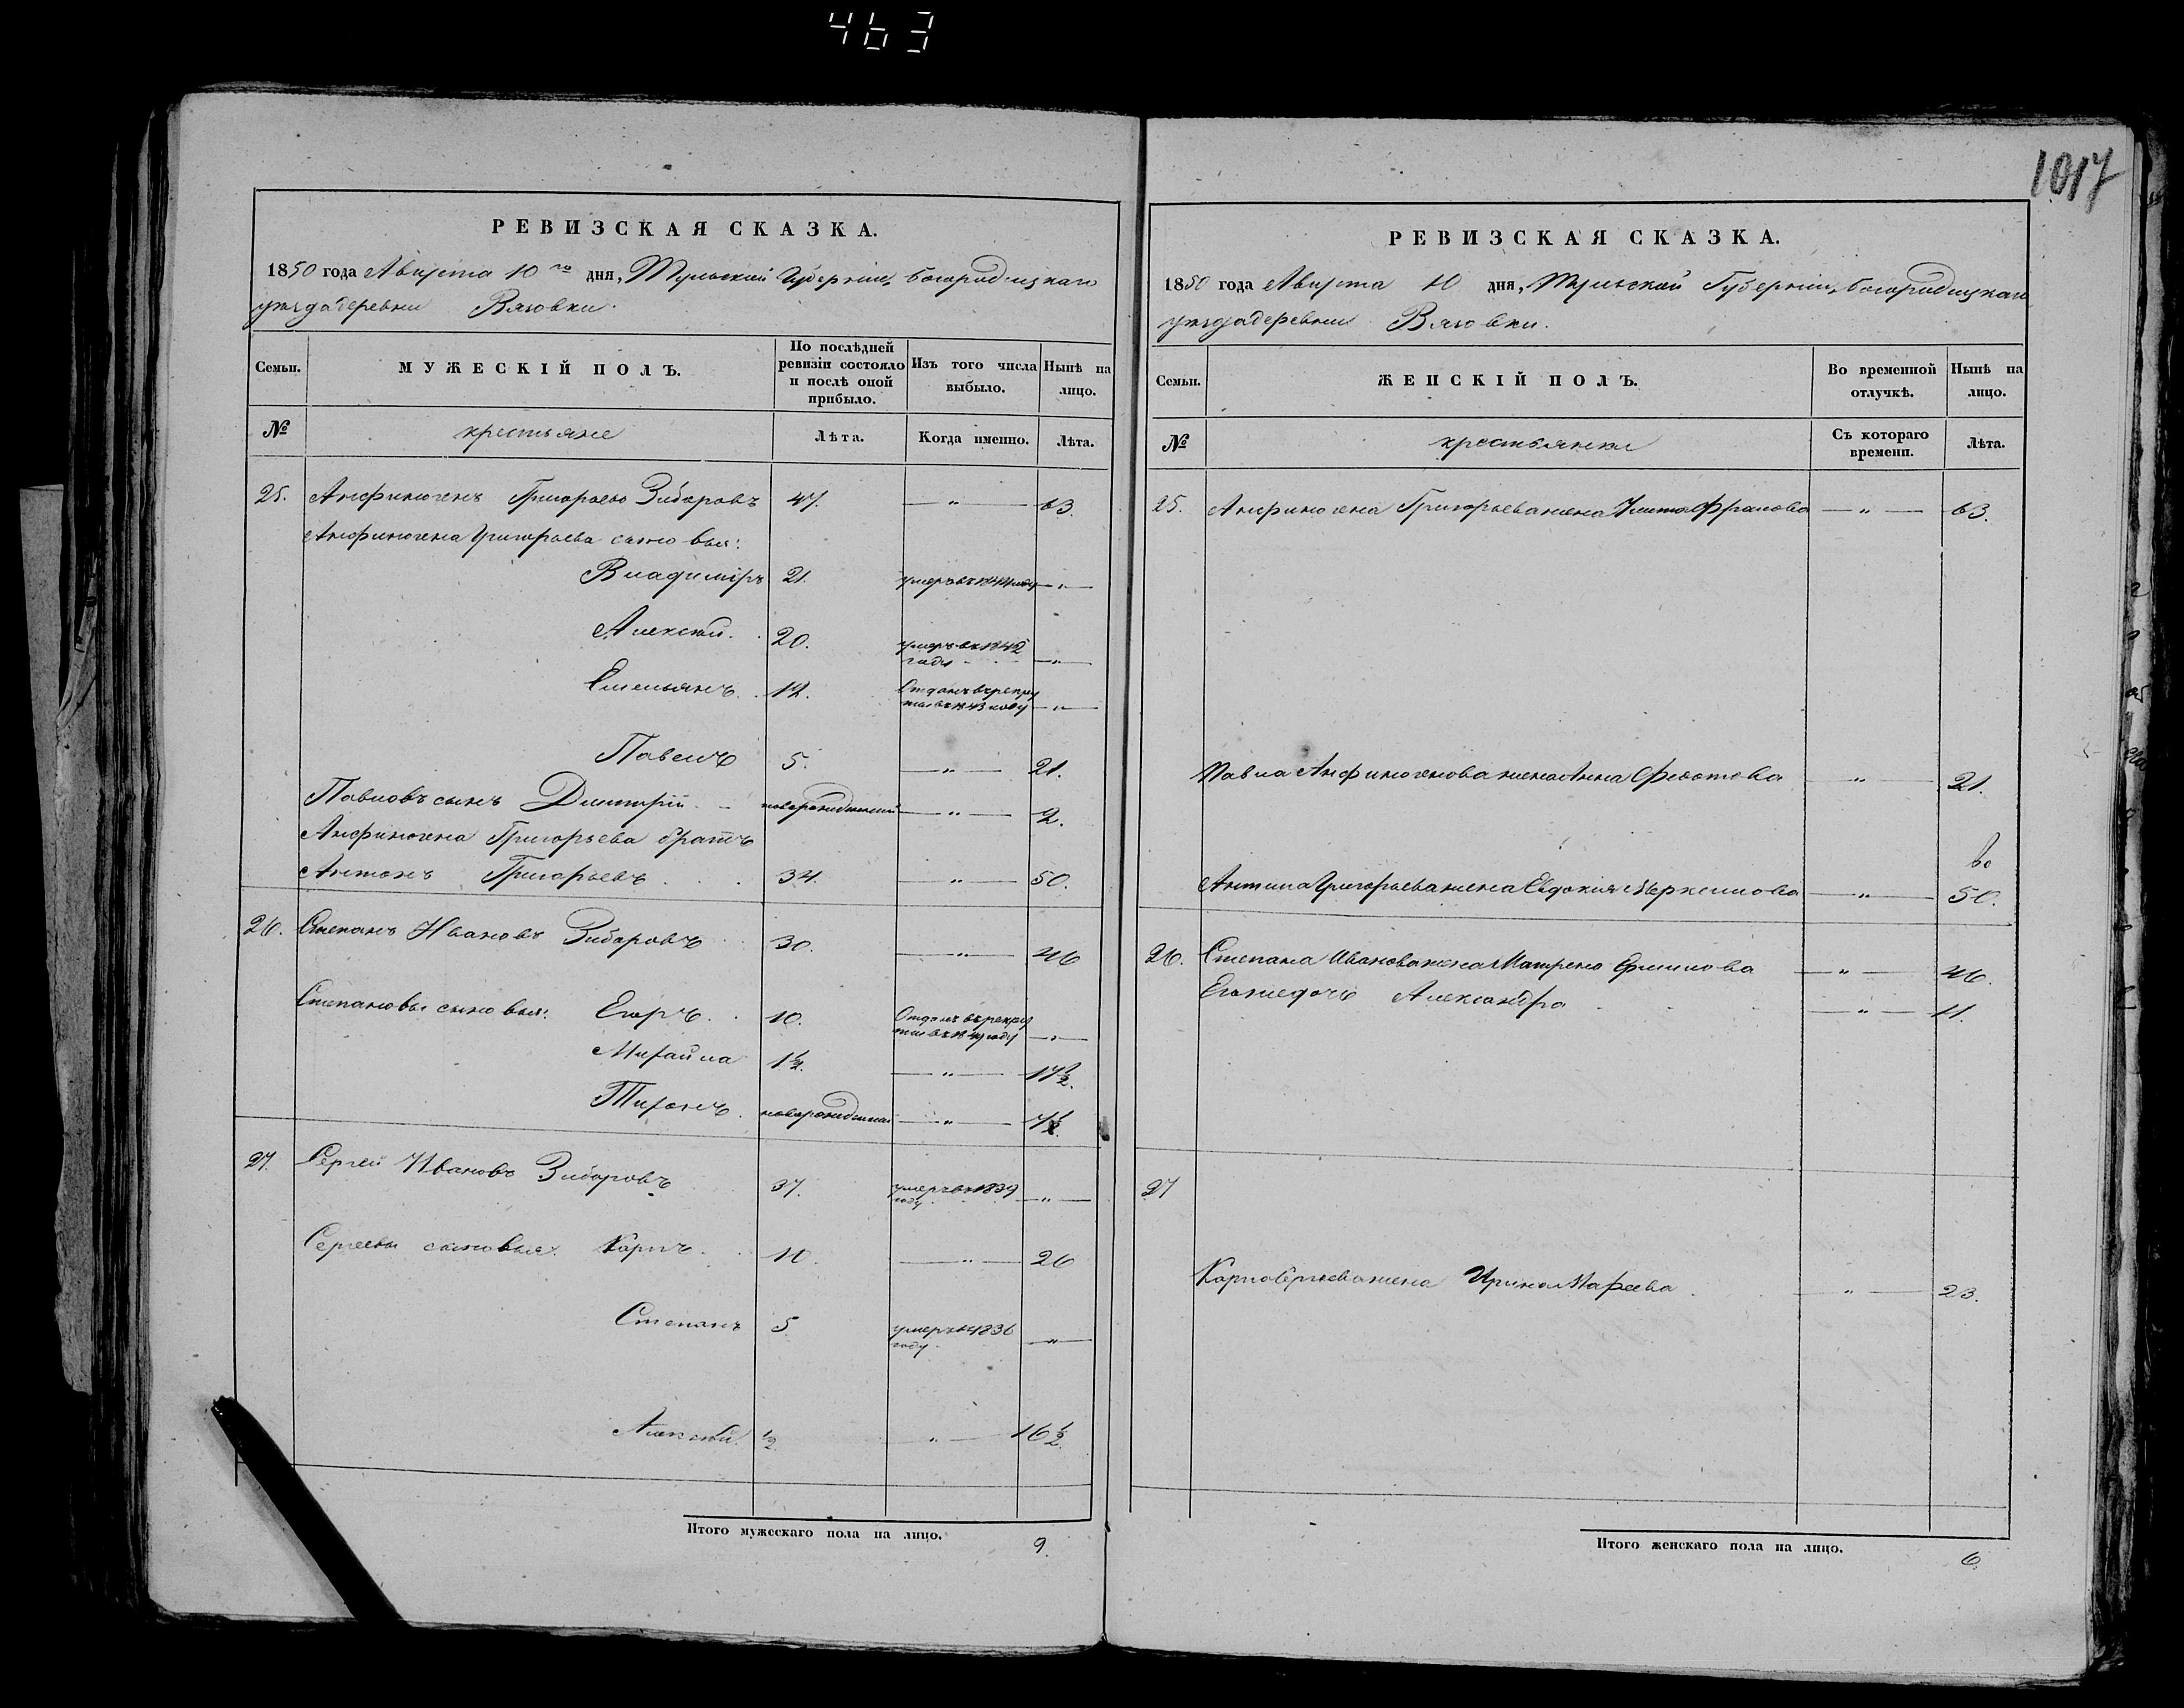 463
1017
РЕВИЗСКАЯ СКАЗКА.
1850 года Августа 10го дня, Тульской Губернiи, Богородицкаго
уѣзда деревни Вязовки.
Семьи.
МУЖЕСКІЙ ПОЛЪ.
По послѣдней ревизіи состояло и послѣ оной прибыло.
Изъ того числа выбыло.
Нынѣ на лицо.
№
крестьяне
Лѣта.
Когда именно.
Лѣта.
25. Анфиногенъ Григорьевъ Зибаровъ 47. — " — 63.
Анфиногена Григорьева сыновья:
Владимiръ 21. умеръ въ 1844 году — " —
Алексѣй. 20. умеръ въ 1842 году — " —
Емельянъ. 12. Отданъ въ рекруты въ 1843 году — " —
Павелъ 5. — " — 21.
Павловъ сынъ Дмитрiй новорожденный — " — 2.
Анфиногена Григорьева братъ
Антонъ Григорьевъ 34. — " — 50.
26. Степанъ Ивановъ Зибаровъ 30. — " — 46
Степановы сыновья: Егоръ. 10. Отданъ въ рекруты въ году — " —
Михайла 1½. — " — 17½.
Тихонъ. новорожденный — " — 7½.
27. Сергей Ивановъ Зибаровъ 37. умеръ въ 1839 году — " —
Сергеевы сыновья: Карпъ. 10. — " — 26
Степанъ 5. умеръ въ 1836 году — " —
Алексѣй. ½ " — 16½.
Итого мужескаго пола на лицо. 9.
РЕВИЗСКАЯ СКАЗКА.
1850 года Августа 10 дня, Тульской Губернiи, Богородицкаго
уѣзда деревни Вязовки.
Семьи.
ЖЕНСКІЙ ПОЛЪ.
Во временной отлучкѣ.
Нынѣ на лицо.
№
крестьянки
Съ котораго времени.
Лѣта.
25. Анфиногена Григорьева жена — " — 63.
Павла Анфиногенова жена Анна Федотова — " — 21.
Антона Григорьева жена Евдокия — " — 50.
26. Степана Иванова жена Матрена — " — 46.
Его же дочь Александра — " — 11.
27
Карпа Сергеева жена Ирина — " — 23.
Итого женскаго пола на лицо. 6.